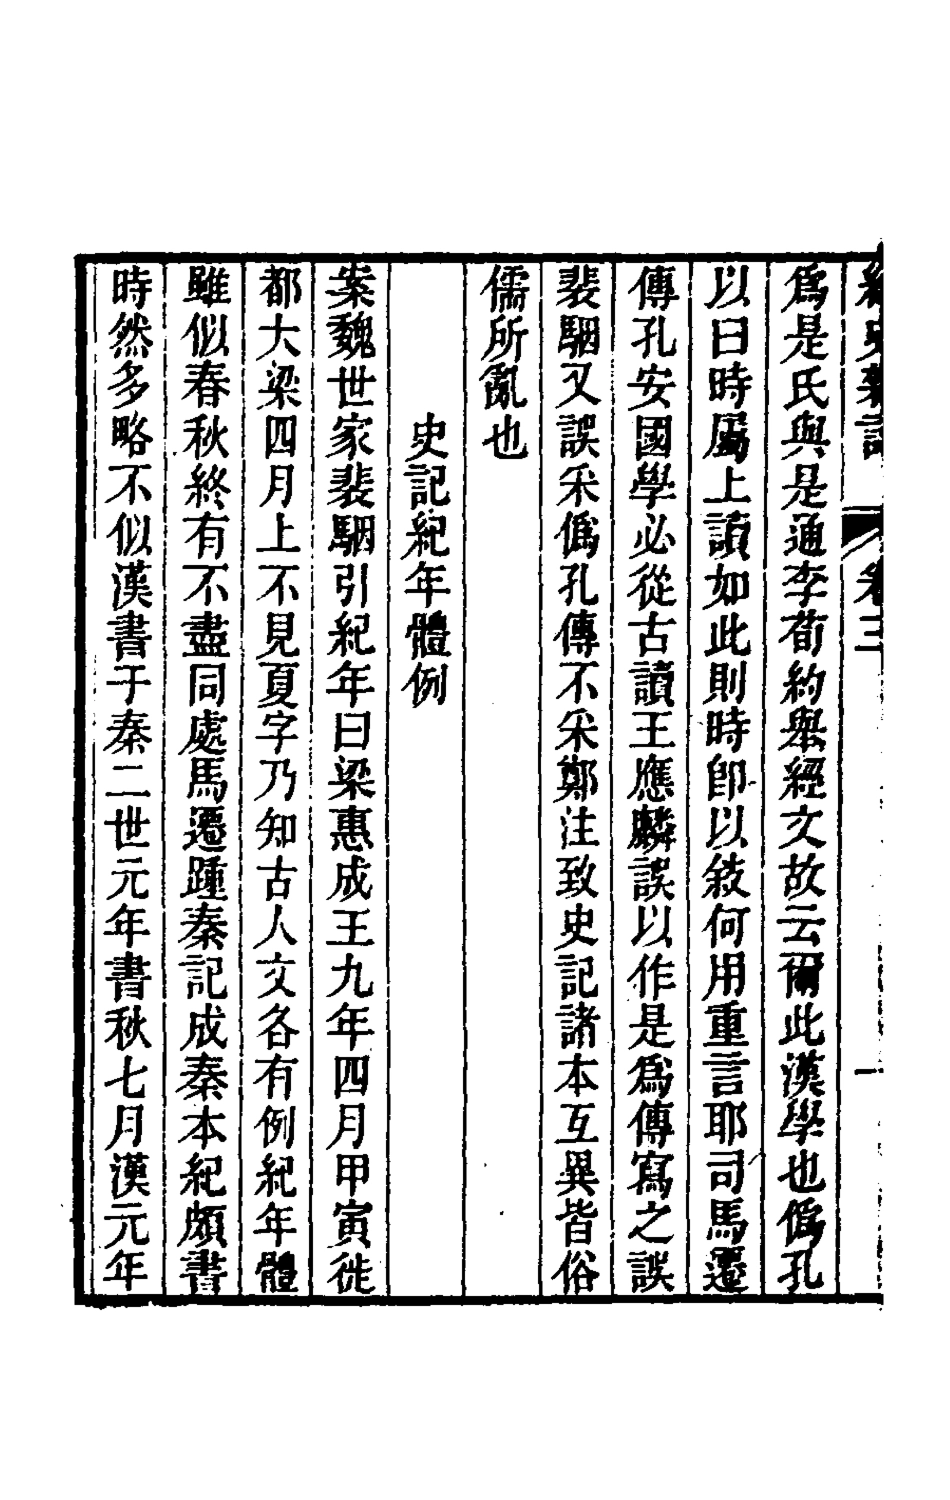 經史雜記 卷三 一
爲是氏與是通李荀約舉經文故云爾此漢學也僞孔
以曰時屬上讀如此則時卽以敍何用重言耶司馬遷
傳孔安國學必從古讀王應麟誤以作是爲傳寫之誤
裴駰又誤釆僞孔傳不釆鄭注致史記諸本互異皆俗
儒所亂也
史記紀年體例
案魏世家裴駰引紀年曰梁惠成王九年四月甲寅徙
都大梁四月上不見夏字乃知古人文各有例紀年體
雖似春秋終有不盡同處馬遷踵秦記成秦本紀頗書
時然多略不似漢書于秦二世元年書秋七月漢元年